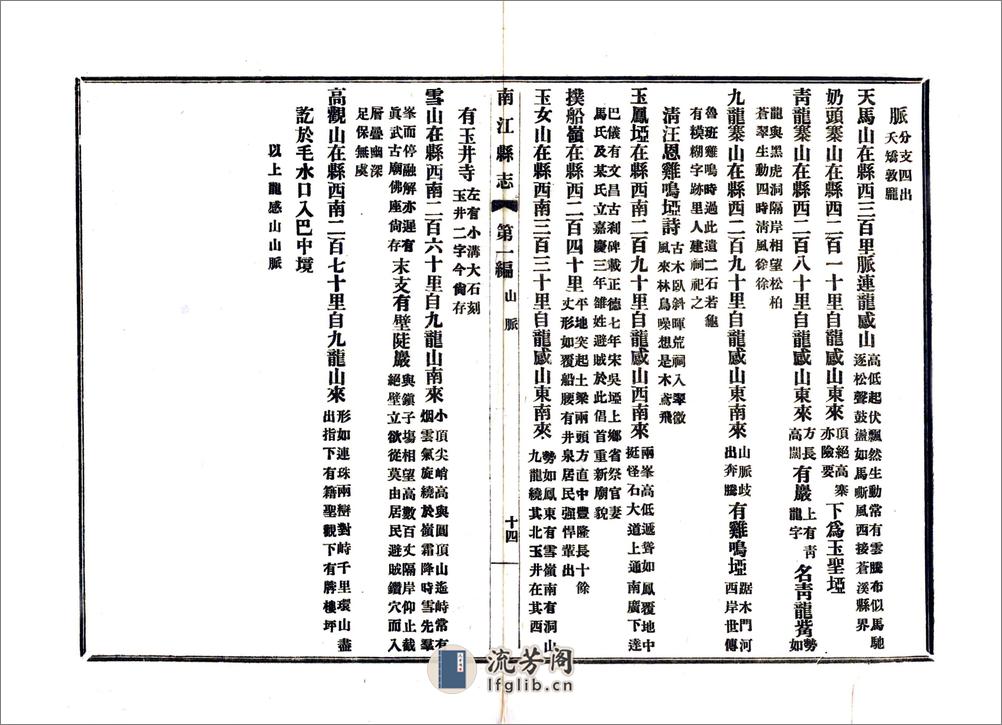 脈分支四出
夭矯敦龐
天馬山在縣西三百里脈連龍感山高低起伏飄然生動常有雲騰布似馬馳
逐松聲鼓盪如馬嘶風西接蒼溪縣界
奶頭寨山在縣西二百一十里自龍感山東來頂絕高寨
亦險要下爲玉聖埡
靑龍寨山在縣西二百八十里自龍感山東來方長
高闊有巖上有靑
龍字名靑龍嘴勢
如
龍與黑虎洞隔岸相望松柏
蒼翠生動四時淸風徐徐
九龍寨山在縣西二百九十里自龍感山東南來山脈歧
出奔騰有雞鳴埡踞木門河
西岸世傳
魯班雞鳴時過此遺二石若龜
有模糊字跡里人建祠祀之
淸汪恩雞鳴埡詩古木臥斜暉荒祠入翠微
風來林鳥噪想是木鳶飛
玉鳳埡在縣西南二百九十里自龍感山西南來兩峯高低遞聳如鳳覆地中
挺怪石大道上通南廣下達
巴儀有文昌古刹碑載正德七年宋吳埡上鄕省祭官妻
馬氏及某氏立嘉慶三年雒姓避賊於此倡首重新廟貌
撲船嶺在縣西二百四十里平地突起土梁兩頭方直中豐隆長十餘
丈形如覆船腰有井泉居民強悍輩出
玉女山在縣西南三百三十里自龍感山東南來勢如鳳東有雪嶺南有洞山
九龍繞其北玉井在其西
南江縣志 第一編 山脈 十四
有玉井寺左有小溝大石刻
玉井二字今尙存
雪山在縣西南二百六十里自九龍山南來小頂尖峭高與圓頂山遙峙常有
烟雲氣旋繞於嶺霜降時雪先羣
峯而停融解亦遲有
眞武古廟佛座尙存末支有壁陡巖與鎭子場相望高數百丈隔岸仰止截
絕壁立欲從莫由居民避賊鑽穴而入
層疊幽深
足保無虞
高觀山在縣西南二百七十里自九龍山來形如連珠兩辯對峙千里環山盡
出指下有籍聖觀下有牌樓坪
訖於毛水口入巴中境
以上龍感山山脈
流芳阁
lfglib.cn